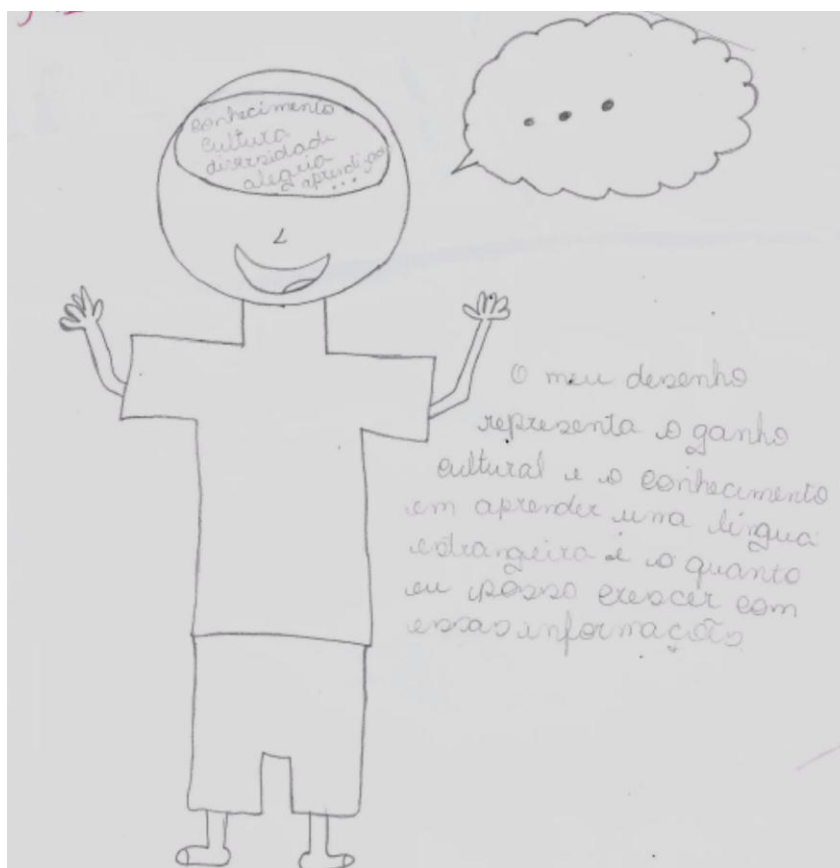 conhecimento
cultura
diversidade
alegria
aprendizad
...
...
O meu desenho
representa o ganho
cultural e o conhecimento
em aprender uma língua
estrangeira é o quanto
eu posso crescer com
essas informações